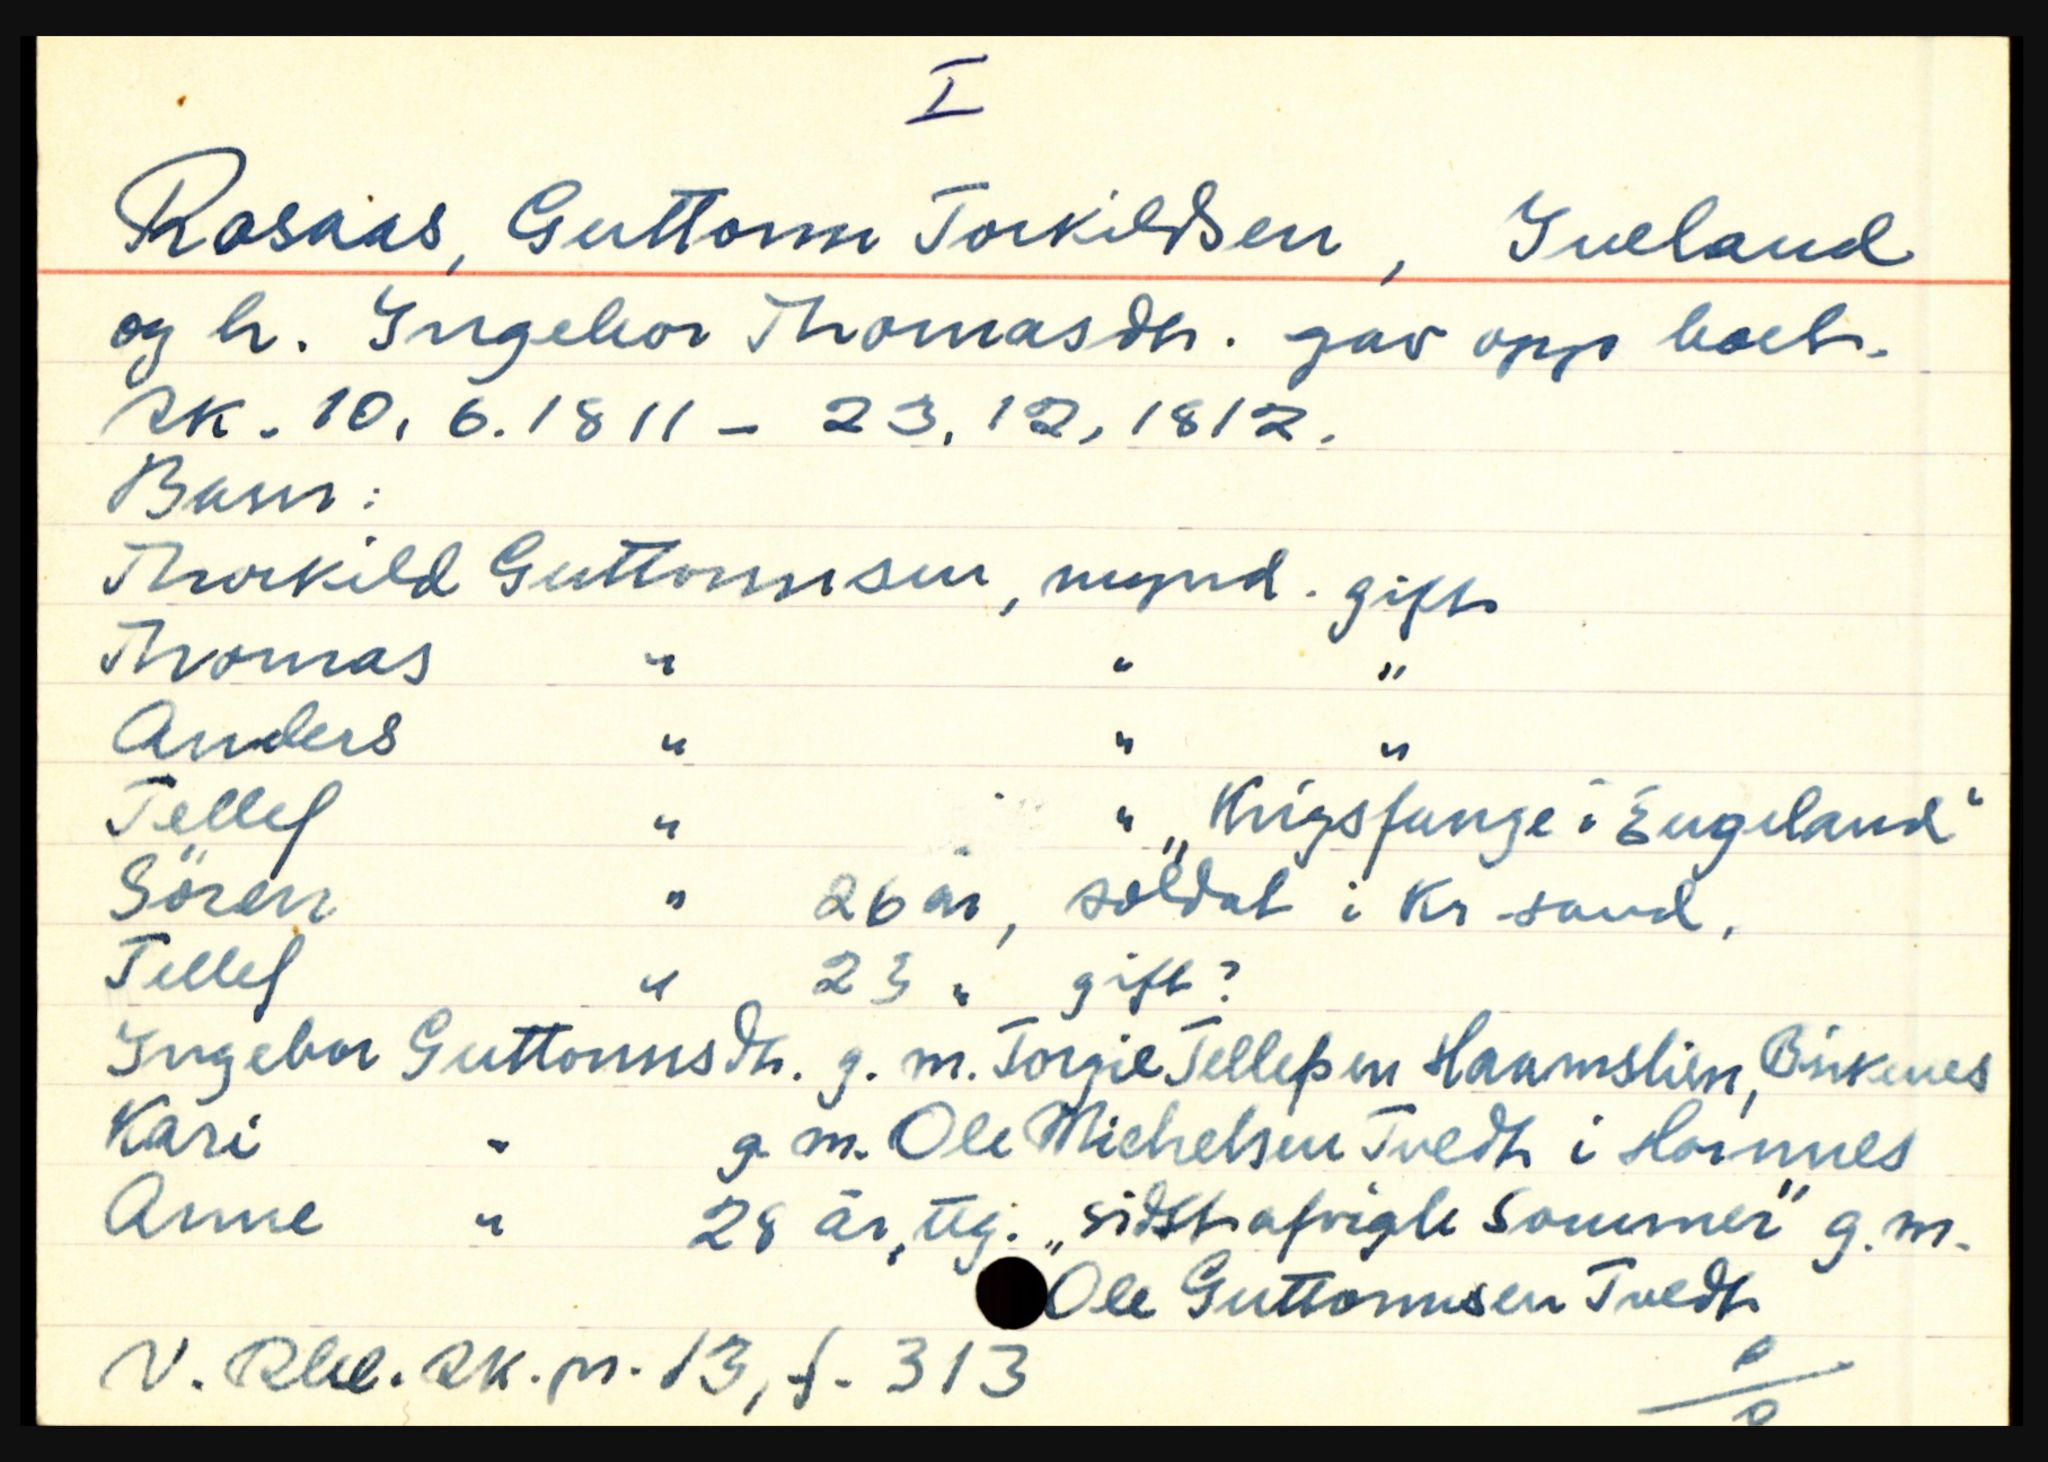 I
Rosaas, Guttorm Torkildsen, Iveland
og h. Ingebor Thomasdtr. gav opp boet.
Sk. 10.6.1811 – 23.12.1812.
Barn:
Thorkild Guttormsen, mynd. gift
Thomas " " "
Anders " " "
Tellef " " „Krigsfange i Engeland"
Sören " 26 år, soldat i Kr.sand.
Tellef " 23 " gift?
Ingebor Guttormsdtr. g. m. Torgie Tellefsen Haamslien, Birkenes
Kari " g. m. Ole Michelsen Tvedt i Hornnes
Anne " 28 år, ug. „sidst afvigte Sommer" g. m.
Ole Guttormsen Tvedt
V. Rbl. Sk. pr. 13, f. 313
0/0